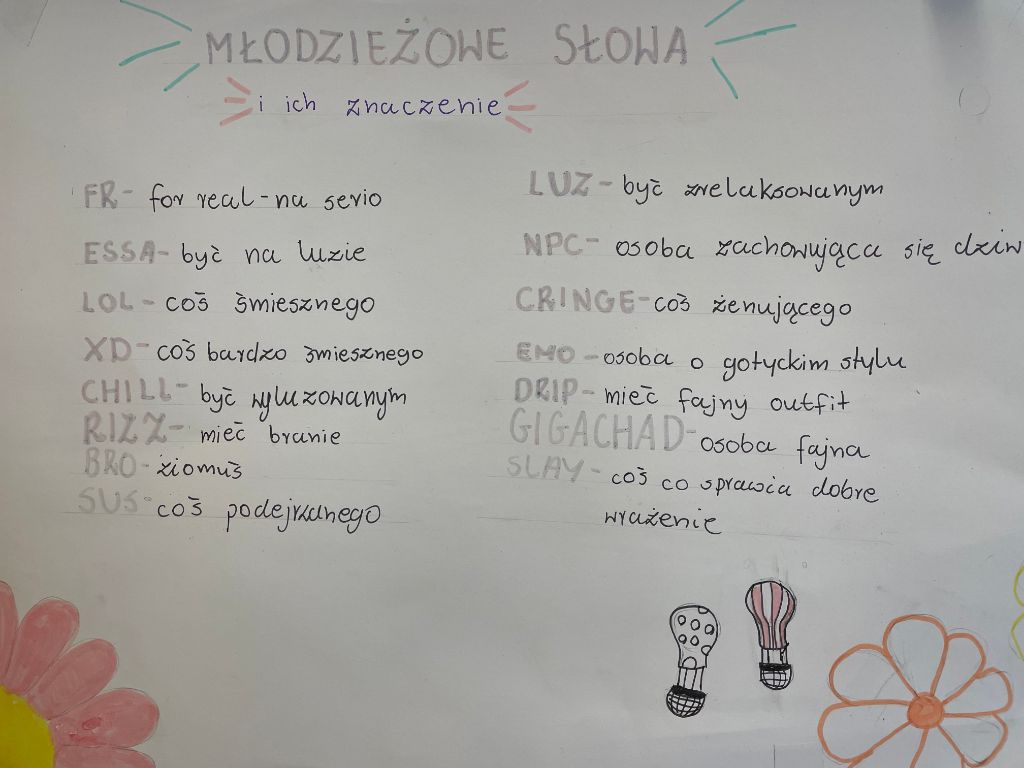 MŁODZIEŻOWE SŁOWA
i ich znaczenie
FR - for real - na serio
ESSA - być na luzie
LOL - coś śmiesznego
XD - coś bardzo śmiesznego
CHILL - być wyluzowanym
RIZZ - mieć branie
BRO - ziomuś
SUS - coś podejrzanego
LUZ - być zrelaksowanym
NPC - osoba zachowująca się dziw
CRINGE - coś żenującego
EMO - osoba o gotyckim stylu
DRIP - mieć fajny outfit
GIGACHAD - osoba fajna
SLAY - coś co sprawia dobre
wrażenie